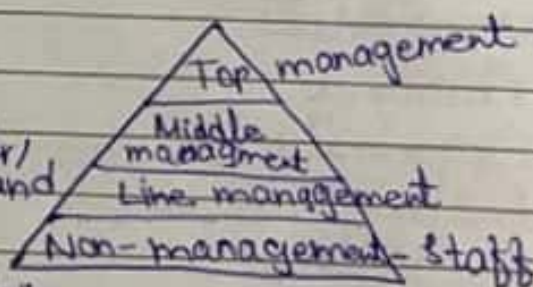 Top management
Middle
managment
r/
and
Line management
Non-management-staff